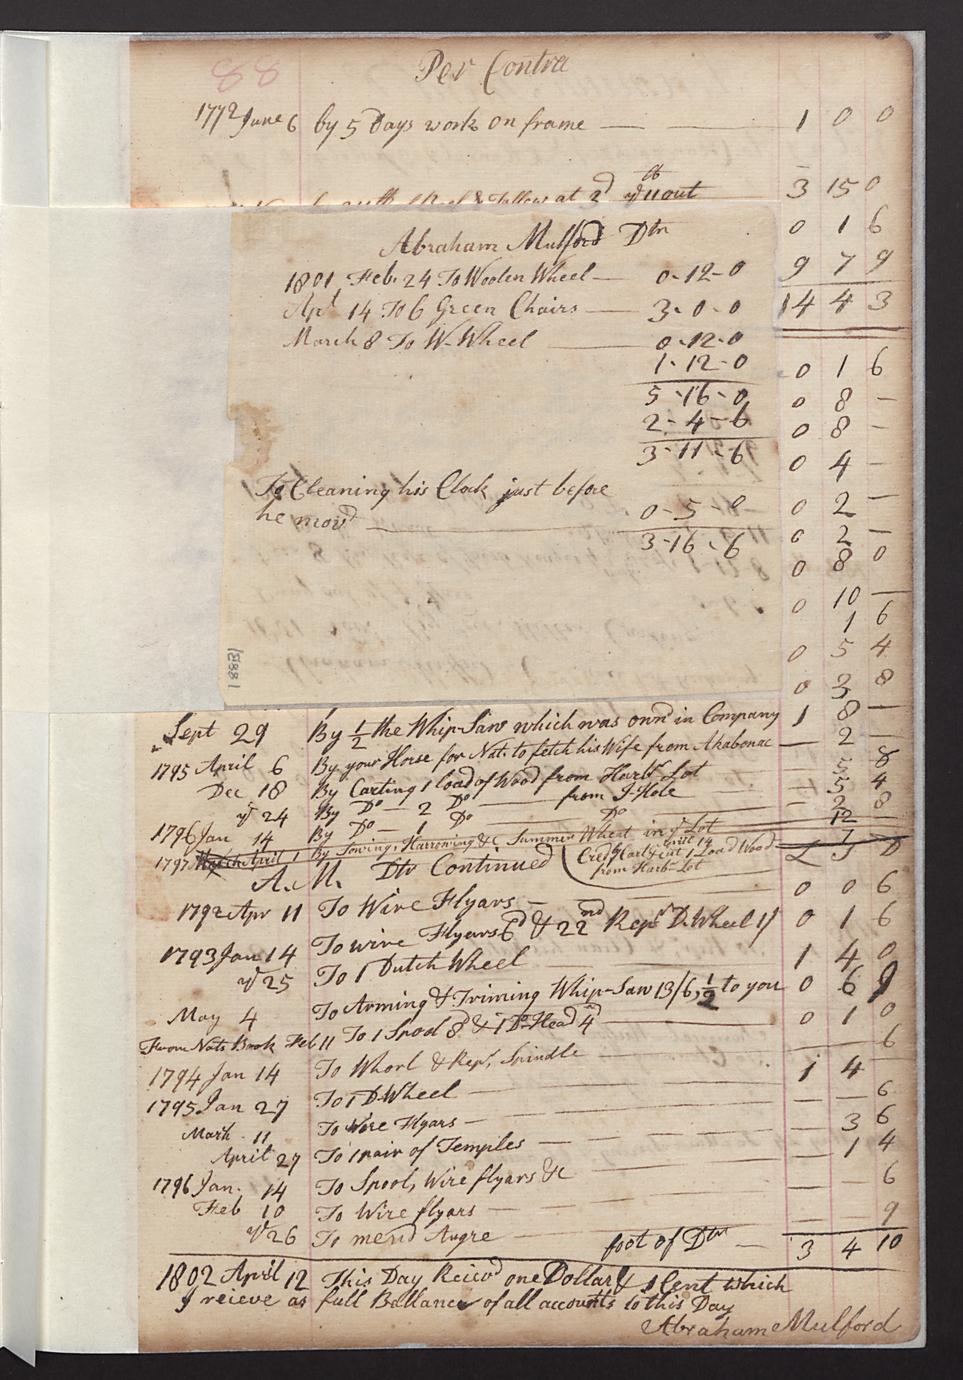 88
Per Contra
1772 June 6 by 5 Days work on frame — — 1 0 0
& Tallow at 2d out 3 15 0
0 1 6
9 7 9
14 4 3
0 1 6
0 8 —
0 8 —
0 4 —
0 2 —
0 2 —
0 8 0
0 10 —
1 6
0 5 4
0 3 8
Abraham Mulford Dtr
1801 Feb 24 To Woolen Wheel — 0-12-0
Apl 14 To 6 Green Chairs — 3-0-0
March 8 To W-Wheel — 0-12-0
1-12-0
5-16-0
2-4-6
3-11-6
To Cleaning his Clock just before
he movd — 0-5-0
3-16-6
15881
Sept 29 By 1/2 the Whip-Saw which was ownd in Company 1 8 —
1795 April 6 By your Horse for Nat. to fetch his Wife from Ahabonac — 2 —
Dec 18 By Carting 1 load of Wood from Harbr Lot 8
yd 24 By Do — 2 Do — from J-Hole 5 4
1796 Jan 14 By Do — 1 Do — Do — 2 8
1797 April 1 By Sowing, Harrowing &c Summer Wheat in yr Lot 12
A. M. Dtr Continued Credt 1 Load Wood from Harb-Lot L S D
1792 Apr 11 To Wire Flyars — 0 0 6
1793 Jan 14 To wire Flyars 6d & 22nd Repr D. Wheel 1/ 0 1 6
yd 25 To 1 Dutch Wheel 1 4 0
May 4 To Arming & Triming Whip-Saw 13/6, 1/2 to you 0 6 9
From Nats Book Feb 11 To 1 Spool 8d & 1 Do Head 4d 0 1 0
1794 Jan 14 To Whorl & Repr, Spindle — 6
1795 Jan 27 To 1 D. Wheel — 1 4
Mark 11 To Wire Flyars — 6
April 27 To 1 pair of Temples — 3 6
1796 Jan. 14 To Spool, Wire flyars &c 1 4
Feb 10 To Wire flyars — 6
yd 26 To mend Augre — 9
foot of Dtr — 3 4 10
1802 April 12 This Day Reicvd one Dollar & 1 Cent which
I reieve as full Ballance of all accounts to this Day
Abraham Mulford